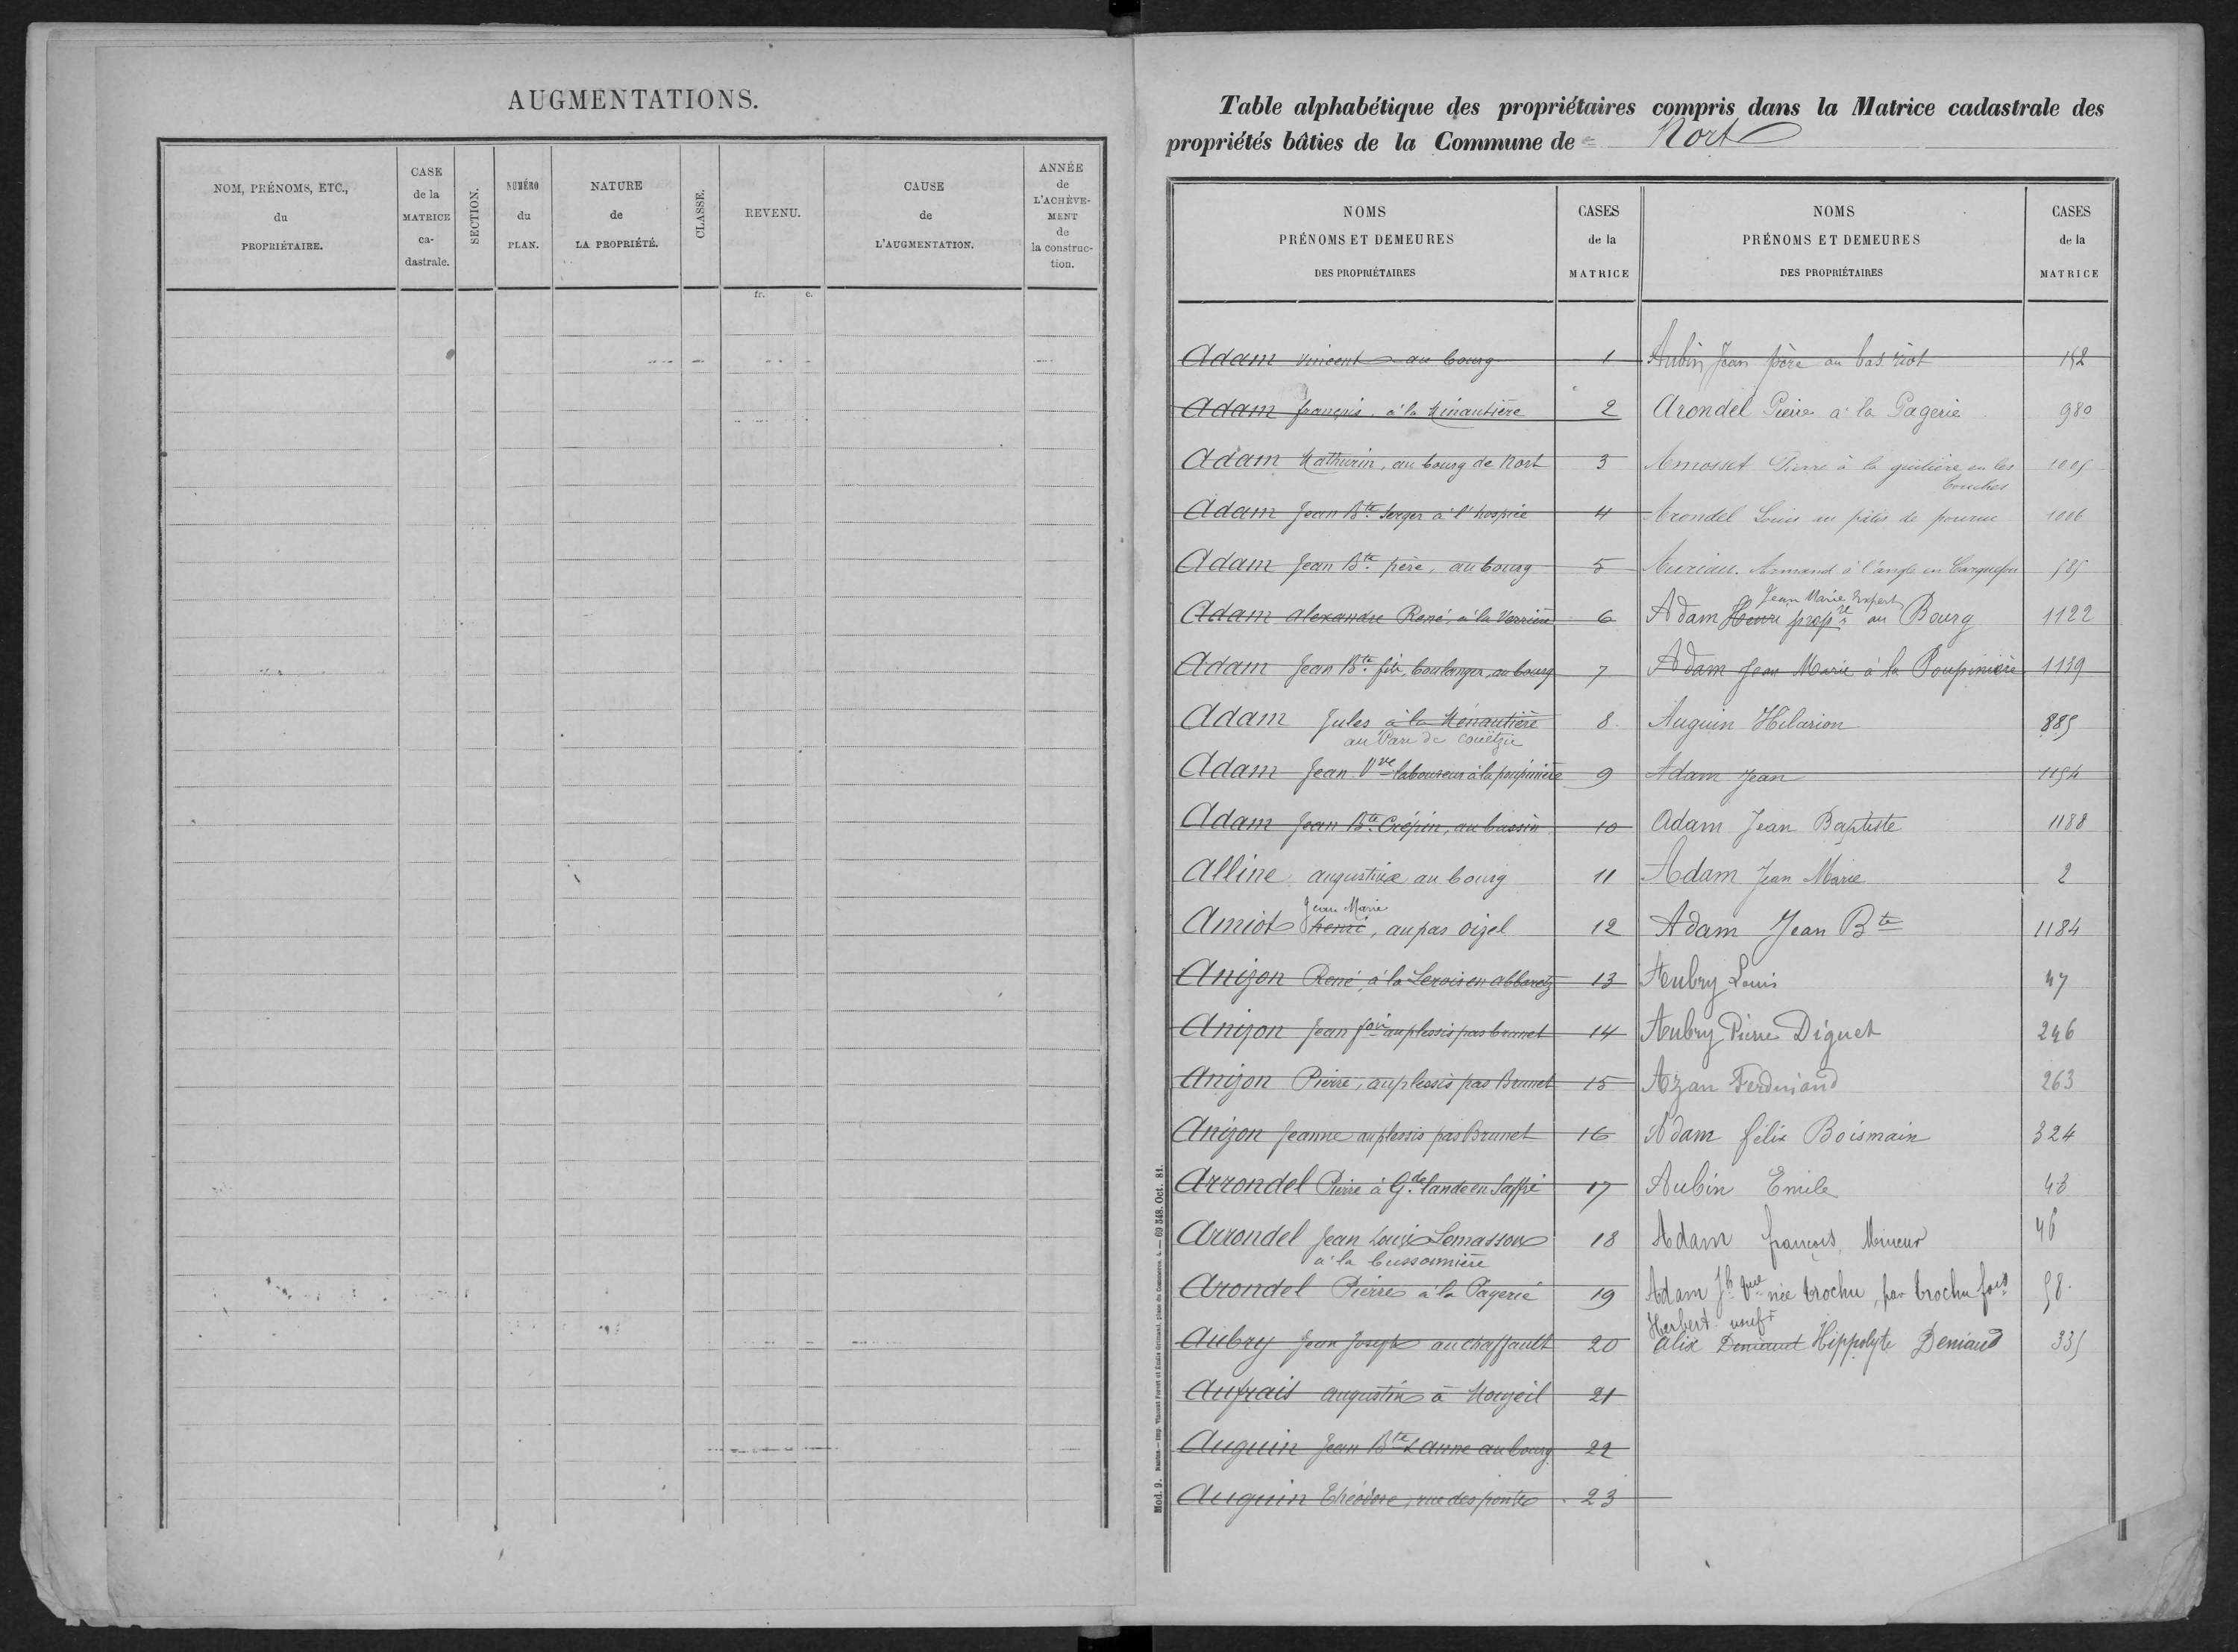 AUGMENTATIONS.
NOM, PRÉNOMS, ETC.,
du
PROPRIÉTAIRE.
CASE
de la
MATRICE
ca-
dastrale.
SECTION.
NUMÉRO
du
PLAN.
NATURE
de
LA PROPRIÉTÉ.
CLASSE.
REVENU.
fr. c.
CAUSE
de
L'AUGMENTATION.
ANNÉE
de
L'ACHÈVE-
MENT
de
la construc-
tion.
Table alphabétique des propriétaires compris dans la Matrice cadastrale des
propriétés bâties de la Commune de Nort
NOMS
PRÉNOMS ET DEMEURES
DES PROPRIÉTAIRES
CASES
de la
MATRICE
Adam Vincent au bourg 1
Adam françois à la Ménautière 2
Adam Mathurin, au bourg de Nort 3
Adam Jean Bte Serger à l'hospice 4
Adam Jean Bte père, au bourg 5
Adam Alexandre René, à la Verrière 6
Adam Jean Bte fils, boulanger, au bourg 7
Adam Jules à la Ménautière 8
au Parc de
Adam Jean Vve laboureur à la poupinière 9
Adam Jean Bte Crépin, au bassin 10
Alline augustine au bourg 11
Jean Marie
Amiot henri, au pas oizel 12
Anizon René, à la en abbaretz 13
Anizon Jean fois au plessis pas brunet 14
Anizon Pierre, au plessis pas Brunet 15
Anizon Jeanne au plessis pas Brunet 16
Arrondel Pierre à Gde lande en Saffré 17
Arrondel Jean Louis Lemasson 18
à la bussonnière
Arondel Pierre à la Pagerie 19
Aubry Jean Joseph au chaffault 20
Aufrais augustin à Mouzeil 21
Auguin Jean Bte Lanne au bourg 22
Auguin Théodore, rue des ponts 23
NOMS
PRÉNOMS ET DEMEURES
DES PROPRIÉTAIRES
CASES
de la
MATRICE
Aubin Jean père au bas riot 152
Arondel Pierre à la Pagerie 980
Amosset Pierre à la en les 1005
Touches
Arondel Louis au pâtis de 1006
Auriau Armand à l'angle en Carquefou 525
Jean Marie Expert
Adam Henri propre au Bourg 1122
Adam Jean Marie à la Poupinière 1139
Auguin Hilarion 885
Adam Jean 1154
Adam Jean Baptiste 1188
Adam Jean Marie 2
Adam Jean Bte 1184
Aubry Louis 47
Aubry Pierre Diguet 246
Azan Ferdinand 263
Adam félix Boismain 324
Aubin Emile 43
Adam françois, Mineur 46
Adam Jh Vve née trochu, par trochu fois 58
Herbert usuft
Alix Hippolyte Deniaud 335
Mod. 9. Nantes.—Imp. Vincent Forest et Émile Grimaud, place du Commerce, 4.—69 348. Oct. 81.